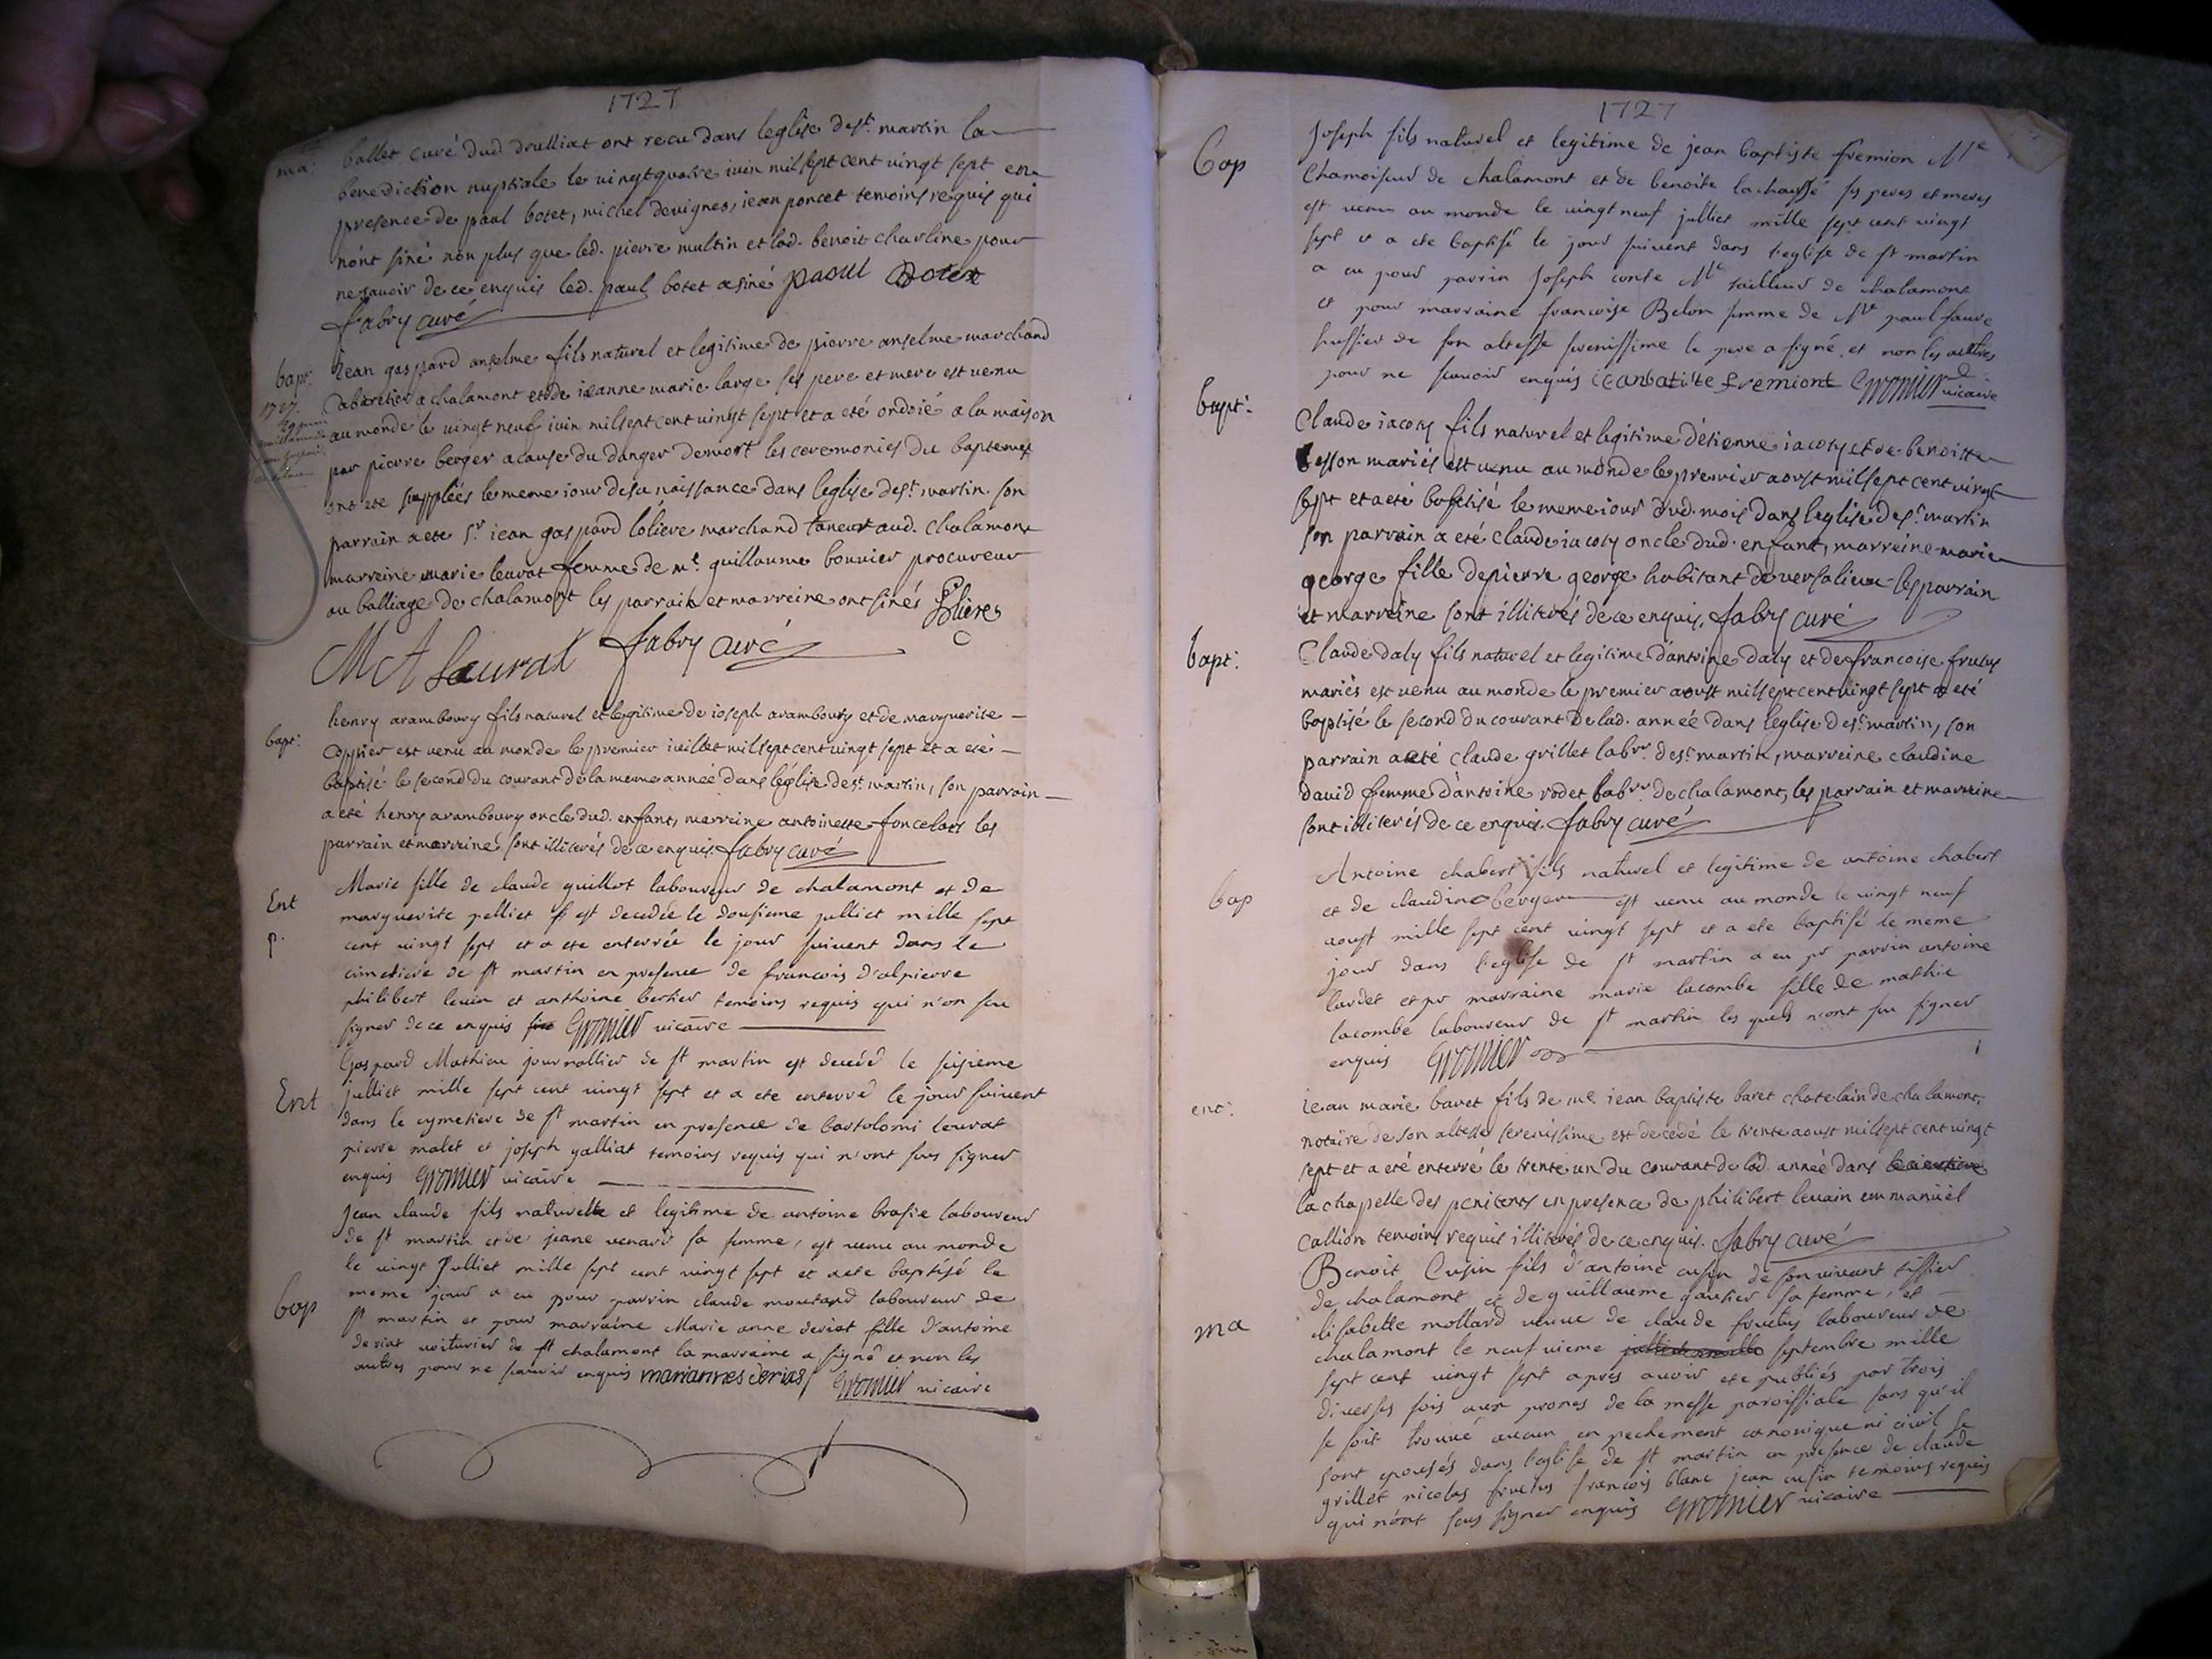 1727
ma: ballet curé dud. drulliat ont recu dans leglise de st. martin la
benediction nuptiale le vingtquatre iuin mil sept cent vingt sept en
presence de paul botet, michel devignes, iean poncet temoins requis qui
n'ont siné non plus que led. pierre multin et lad. benoit charline pour
ne savoir de ce enquis led. paul botet a siné paoul botet
fabry curé
bapt: Iean gaspard anselme fils naturel et legitime de pierre anselme marchand
1727 cabaretier a chalamont et de ieanne marie large ses pere et mere est venu
au monde le vingt neuf iuin mil sept cent vingt sept et a eté ondoié a la maison
par pierre berger a cause du danger de mort les ceremonies du bapteme
ont ete suppleés le meme iour de sa naissance dans leglise de st. martin. son
parrain a ete Sr. iean gaspard loliere marchand taneur aud. chalamont
marreine marie leurat femme de me. guillaume bouvier procureur
au balliage de chalamont les parrain et marreine ont sinés Loliere
M A Leurat fabry curé
henry arambourg fils naturel et legitime de ioseph arambourg et de marguerite
bapt: coppier est venu au monde le premier iuillet mil sept cent vingt sept et a eté
baptisé le second du courant de la meme année dans léglise de st. martin, son parrain
a eté henry arambourg oncle dud. enfant, marreine antoinette foncelars les
parrain et marreine sont illiterés de ce enquis. fabry curé
Ent Marie fille de claude guillot laboureur de chalamont et de
p. marguerite pelliet est decedée le dousieme julliet mille sept
cent vingt sept et a ete enterrée le jour suivent dans le
cimetiere de st martin en presence de francois d'alpierre
philibert levin et anthoine bertier temoins requis qui n'on seu
signer de ce enquis Gromier vicaire
Gaspard Mathieu journallier de st martin est decedé le seisieme
Ent julliet mille sept cent vingt sept et a ete enterré le jour suivent
dans le cymetiere de st martin en presence de bartolomi leurat
pierre malet et joseph galliat temoins requis qui n'ont seus signer
enquis Gromier vicaire
Jean claude fils naturelle et legitime de antoine brasie laboureur
de st martin et de jeane venard sa femme, est venu au monde
le vingt Julliet mille sept cent vingt sept et a ete baptisé le
bap meme jour a eu pour parrin claude moutard laboureur de
st martin et pour marraine Marie anne deriat fille d'antoine
deriat voiturier de st chalamont la marraine a signé et non les
autres pour ne scavoir enquis mariannes derias Gromier vicaire
1727
bap Joseph fils naturel et legitime de jean baptiste fremion Me
Chamoiseur de chalamont et de benoite lachassé ses peres et meres
est venu au monde le vingt neuf julliet mille sept cent vingt
sept et a ete baptisé le jour suivent dans l'eglise de st martin
a eu pour parrin Joseph conte Me tailleur de chalamont
et pour marraine francoise Belon femme de Me paul faure
huissier de son altesse serenissime le pere a signé et non les aultres
pour ne scavoir enquis ieanbatiste fremiont Gromier vicaire
bapt: Claude iacoty fils naturel et legitime d'étienne iacoty et de benoitte
besson mariés est venu au monde le premier aoust mil sept cent vingt
sept et a eté baptisé le meme iour dud. mois dans leglise de st. martin
son parrain a eté Claude iacoty oncle dud. enfant, marreine marie
george fille de pierre george habitant de versalieux les parrain
et marreine sont illiterés de ce enquis. fabry curé
bapt: Claude daly fils naturel et legitime d'antoine daly et de francoise frutus
mariés est venu au monde le premier aoust mil sept cent vingt sept a eté
baptisé le second du courant de lad. année dans leglise de st. martin, son
parrain a eté Claude grillet labr. de st. martin, marreine claudine
david femme d'antoine rodet labr. de chalamont, les parrain et marreine
sont illiterés de ce enquis. fabry curé
bap Antoine chabert fils naturel et legitime de antoine chabert
et de claudine berger est venu au monde le vingt neuf
aoust mille sept cent vingt sept et a ete baptisé le meme
jour dans l'eglise de st martin a eu pr parrin antoine
lardet et pr marraine marie lacombe fille de mathie
lacombe laboureur de st martin les quels n'ont seu signer
enquis Gromier
ent: iean marie baret fils de me iean baptiste baret chatelain de chalamont,
notaire de son altesse serenissime est decedé le trente aoust mil sept cent vingt
sept et a eté enterré le trente un du courant de lad. année dans le cimetiere
la chapelle des penitens en presence de philibert levain emmanüel
callion temoins requis illiterés de ce enquis. fabry curé
Benoit Cusin fils d'antoine cusin de son vivant tissier
de chalamont et de guillaume gautier sa femme, et
ma elisabette mollard veuve de claude fructus laboureur de
chalamont le neufvieme septembre mille
sept cent vingt sept apres avoir ete publiés par trois
diverses fois aux prones de la messe paroissiale sans qu'il
se soit trouvé aucun enpechement canonique ni civil se
sont epousés dans l'eglise de st martin en presence de claude
grillet nicolas fructus francois blanc jean cusin temoins requis
qui n'ont seus signer enquis Gromier vicaire